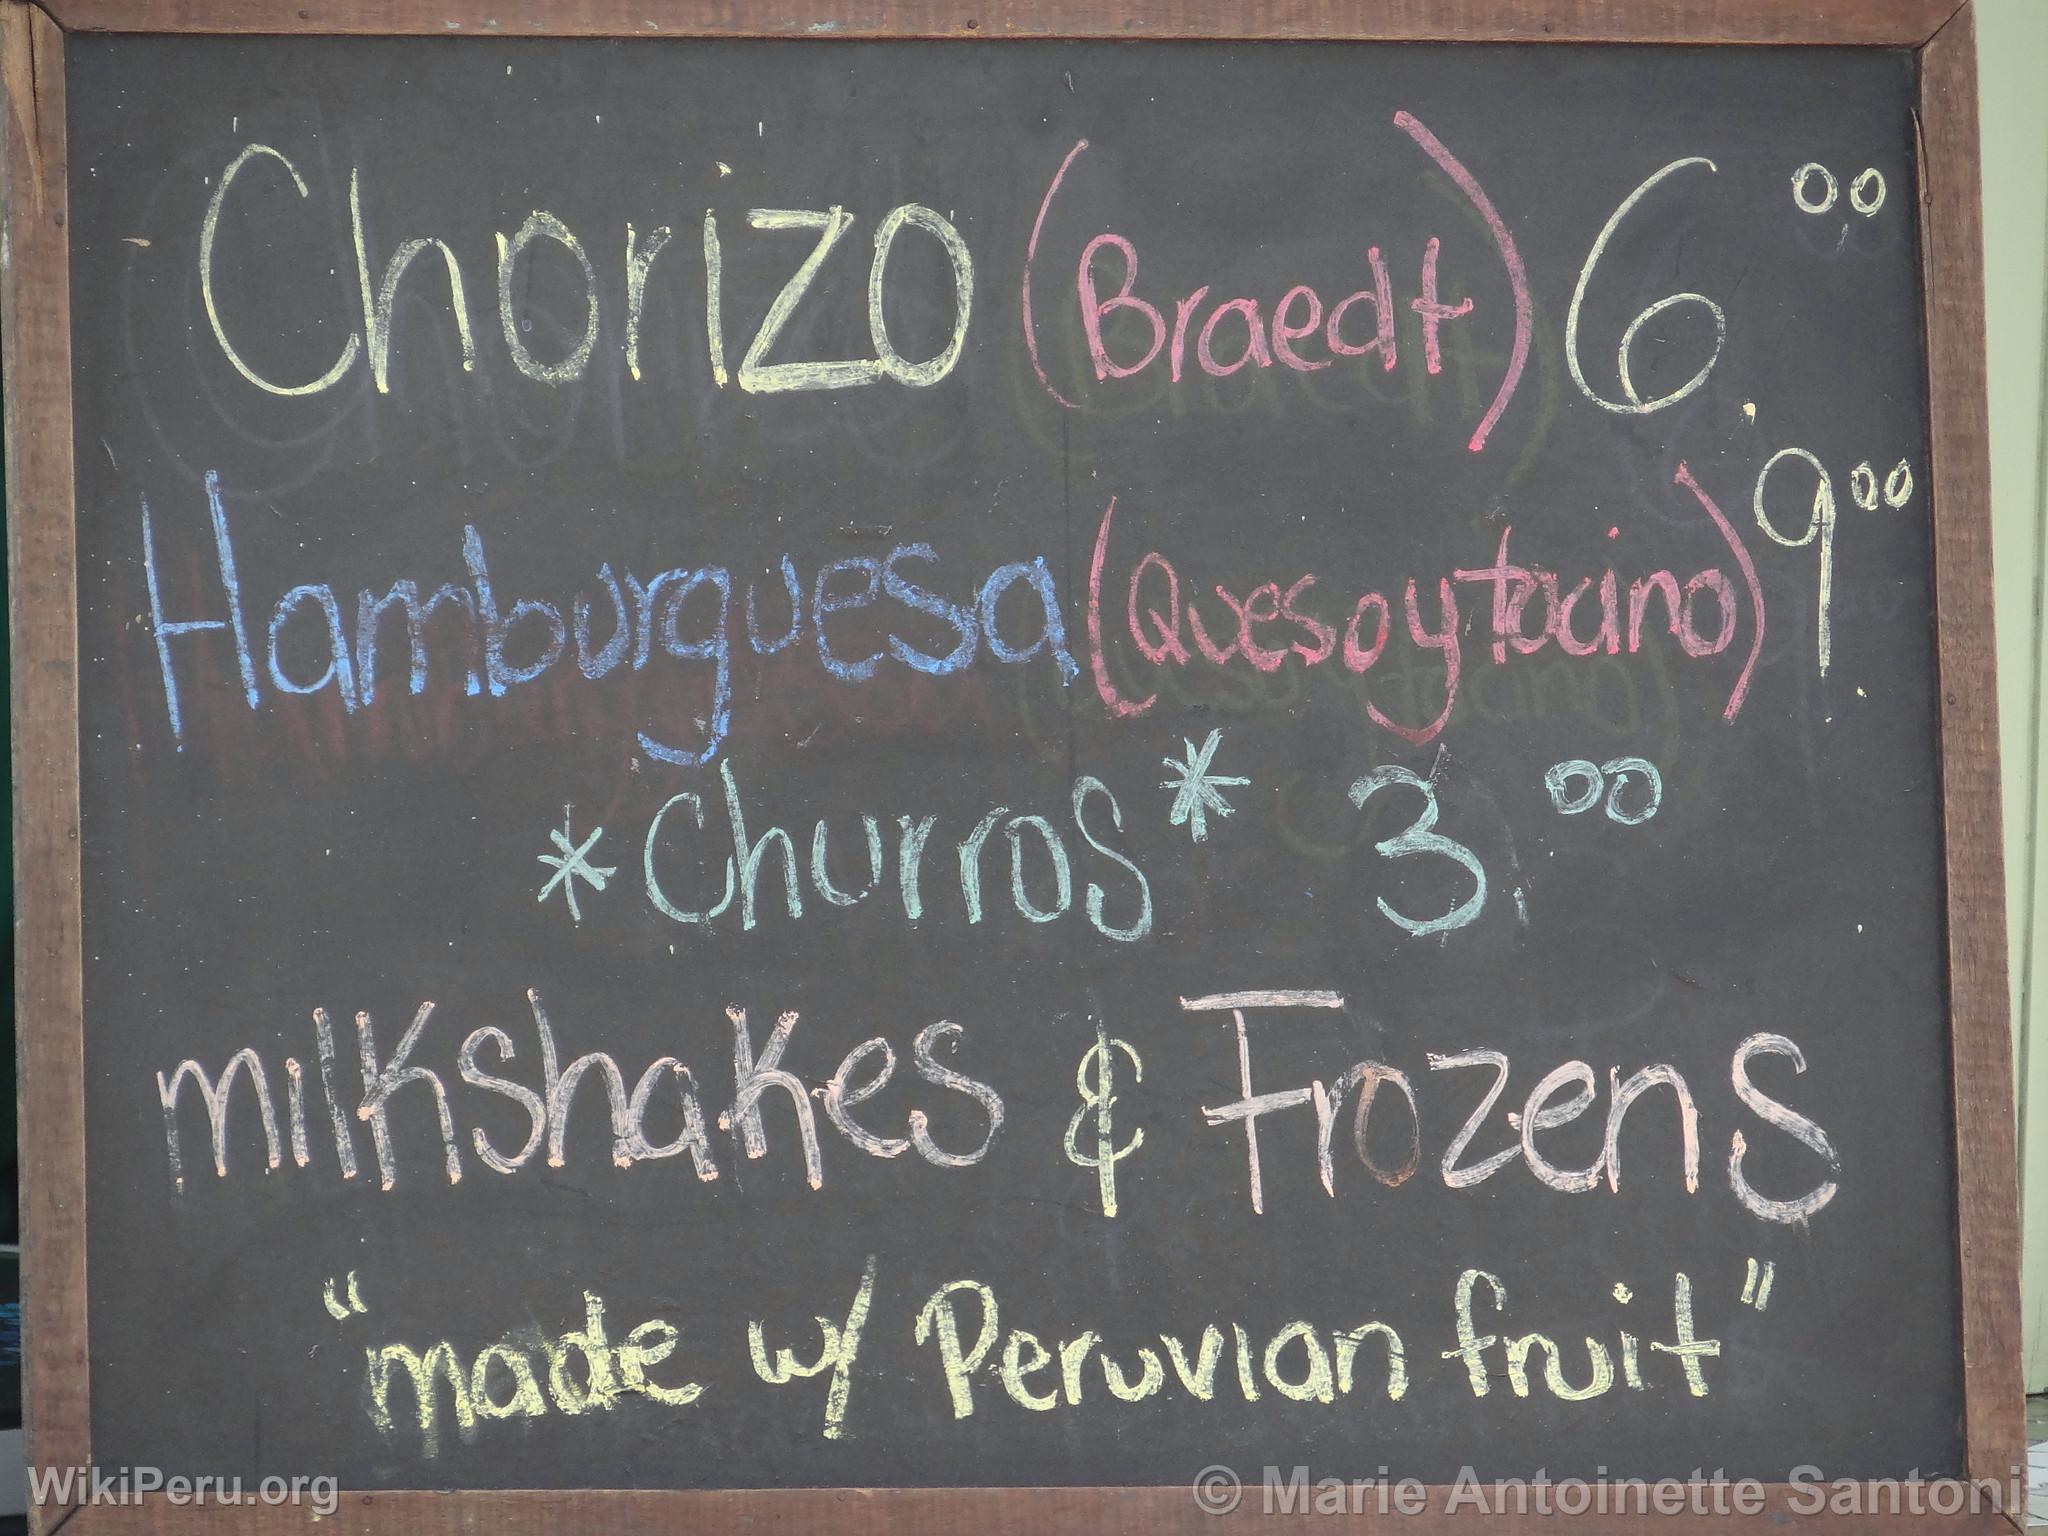 Chorizo (Braedt) 6.00
Hamburguesa (Queso y tocino) 9.00
*Churros* 3.00
milkshakes & Frozens
"made w/ Peruvian fruit"
WikiPeru.org
© Marie Antoinette Santoni